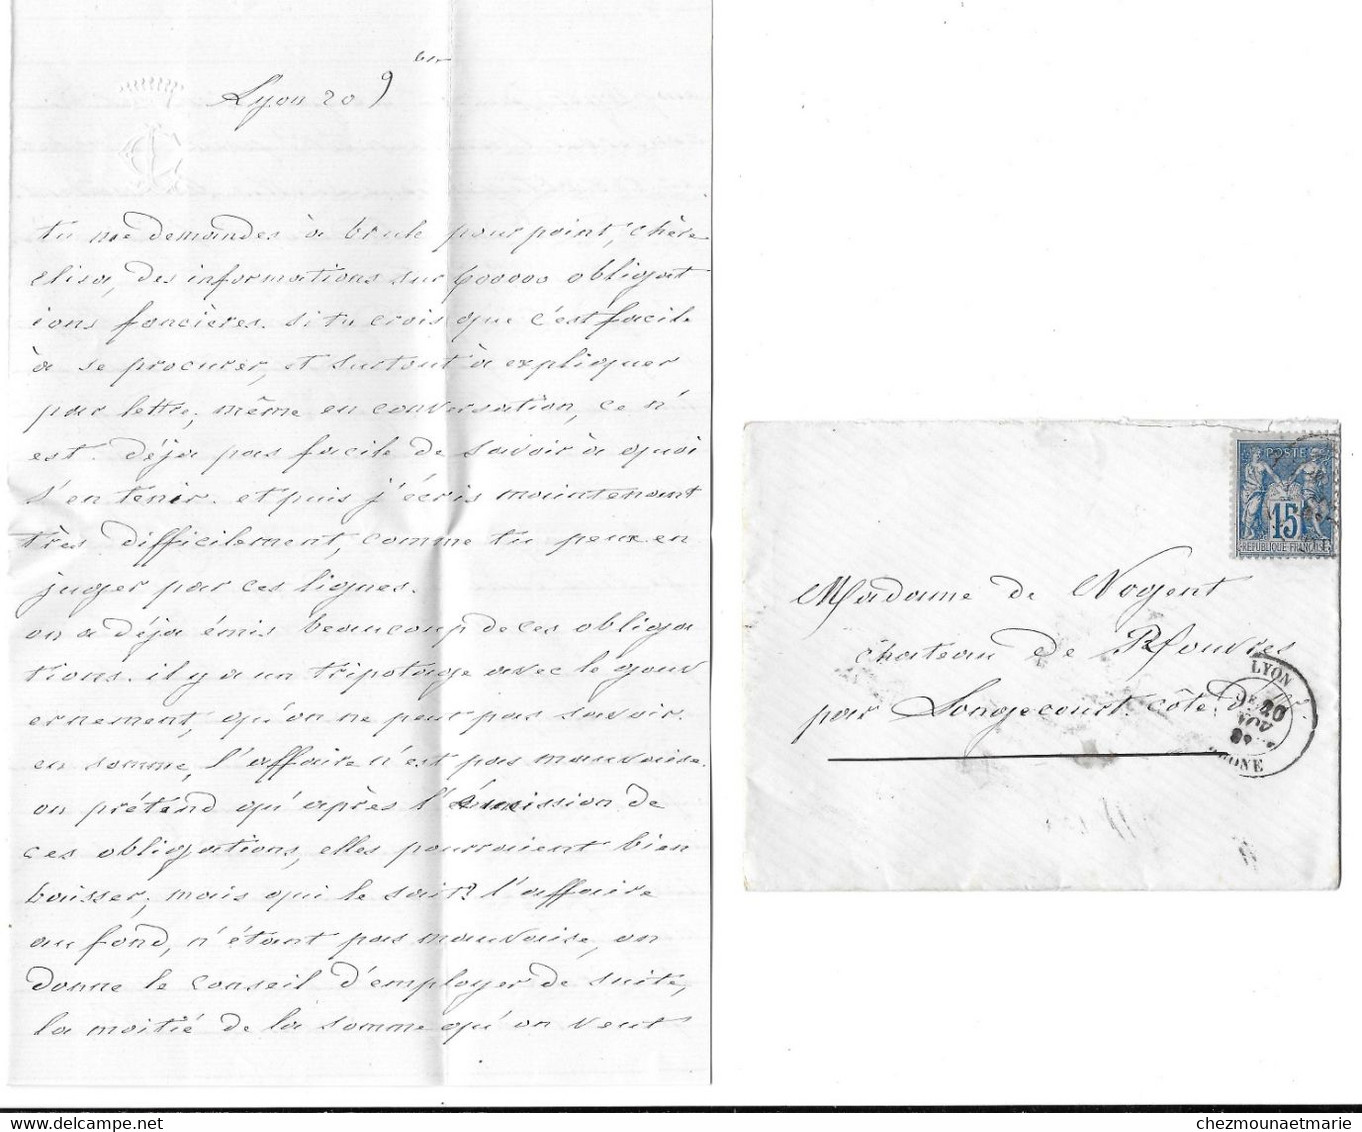 Lyon 20 9bre
tu me demandes à brule pourpoint, chère
elisa, des informations sur 600000 obligat
ions foncières. si tu crois que c'est facile
à se procurer, et surtout à expliquer
par lettre, même en conversation, ce n'
est déja pas facile de savoir à quoi
s'en tenir. et puis j'écris maintenant
très difficilement, comme tu peux en
juger par ces lignes.
on a déja émis beaucoup de ces obliga
tions. il y a un tripotage avec le gouv
ernement, qu'on ne peut pas savoir.
en somme, l'affaire n'est pas mauvaise.
on prétend qu'après l'émission de
ces obligations, elles pourraient bien
baisser, mais qui le sait? l'affaire
au fond, n'étant pas mauvaise, on
donne le conseil d'employer de suite,
la moitié de la somme qu'on veut
POSTE
15
REPUBLIQUE FRANÇAISE
Madame de Nogent
château de Rouvres
par Longecourt. côte d'
LYON
20
NOV
RHONE
chezmounaetmarie.com